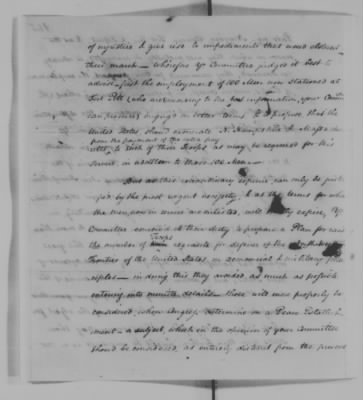 of injustice & give rise to impediments that would obstruct
their march — wherefore Yr Committee judges it best to
advise — first the employment of 100 Men now stationed at
Fort Pitt (who are according to the best information, your Commit-
tee can procure engaged on better terms & to propose that the
United States should exonerate N. Hampshire & Massachu-
from the payment of the extra pay
setts, to such of their Troops as may be required for this
Service in addition to those 100 Men —
But as this extraordinary expence can only be justi-
fied by the most urgent necessity, & as the terms for which
the men, now in service are enlisted, will shortly expire, Yr
Committee conceived it their duty to prepare a Plan for raising
Troops
the number of requisite for defence of the
Frontiers of the United States, on economical & military prin-
ciples — in doing this they avoided, as much as possible
entering into minute details — those will more properly be
considered, when Congress determine on a Peace Establish-
ment — a subject, which in the opinion of your Committee
should be considered, as entirely distinct from the present